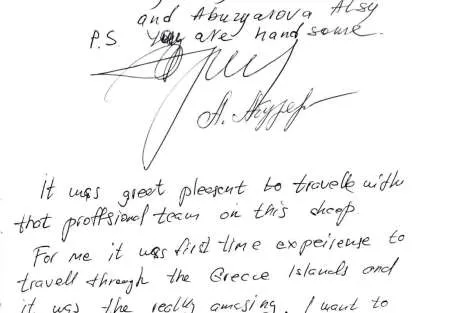 and Abuzyarova Alsy
P.S You are handsome.
It was great pleasent to travelle with
that proffsional team on this sheep
For me it was first time expeirense to
travell through the Grecce Islands and
it was the really amasing. I want to